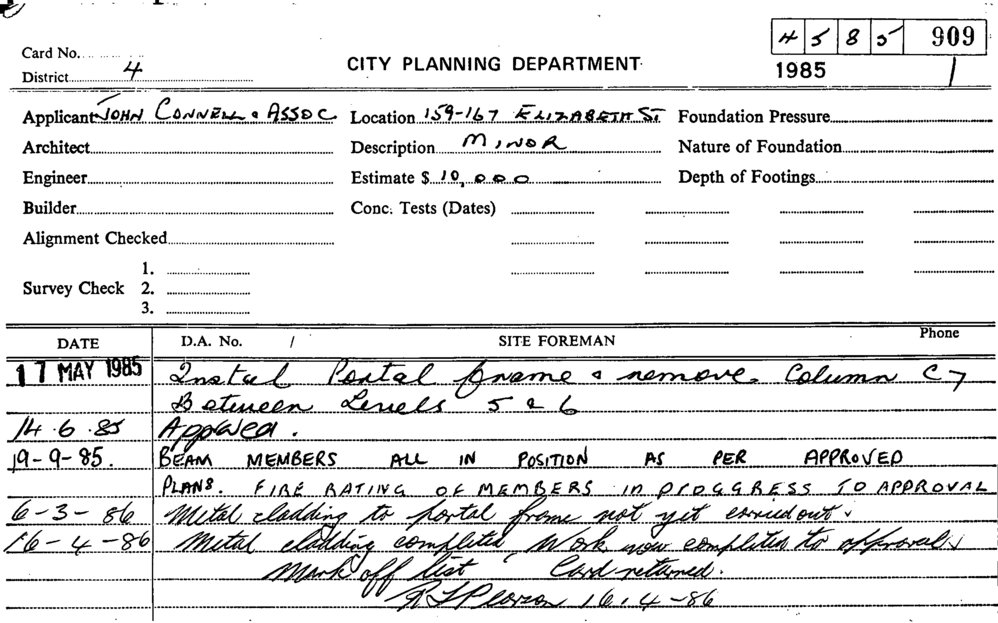 4 5 8 5 909
Card No.
CITY PLANNING DEPARTMENT
1985 1
District 4
Applicant JOHN CONNELL & ASSOC Location 159-167 ELIZABETH ST Foundation Pressure
Architect Description MINOR Nature of Foundation
Engineer Estimate $ 10,000 Depth of Footings
Builder Conc. Tests (Dates)
Alignment Checked
1.
Survey Check 2.
3.
DATE D.A. No. / SITE FOREMAN Phone
17 MAY 1985 Instal Portal frame & remove Column C7
Between Levels 5 & 6
14.6.85 Approved.
19-9-85. BEAM MEMBERS ALL IN POSITION AS PER APPROVED
PLANS. FIRE RATING OF MEMBERS IN PROGGRESS TO APPROVAL
6-3-86 Metal cladding to portal frame not yet carried out.
16-4-86 Metal cladding completed. Work now completed to approval.
Mark off list. Card returned.
16.4-86